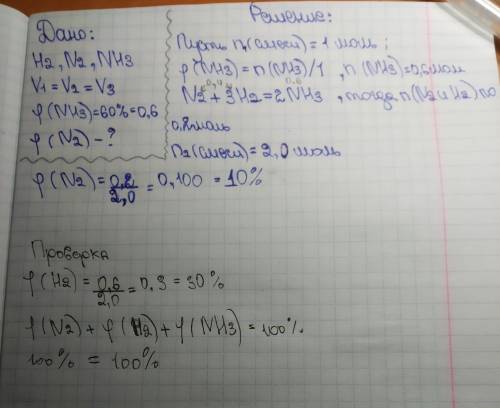 Дано:
H2, N2, NH3
V1 = V2 = V3
φ(NH3)=60%=0,6
φ(N2) – ?
Решение:
Пусть n(смеси) = 1 моль ;
φ(NH3) = n(NH3)/1 , n(NH3)=0,6моль
0,6
N2 + 3H2 = 2NH3 , тогда n(N2 и H2) по
0,2моль
n2(смеси) = 2,0 моль
φ(N2) = 0,2/2,0 = 0,100 = 10%
Проверка
φ(H2) = 0,6/2,0 = 0,3 = 30%
φ(N2) + φ(H2) + φ(NH3) = 100%
100% = 100%